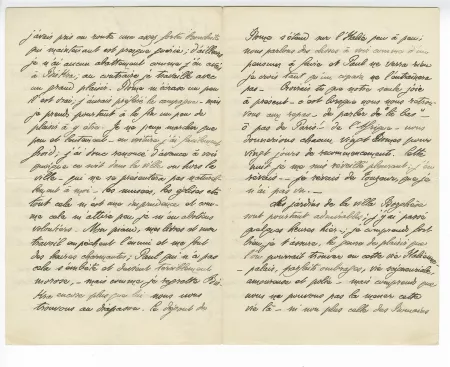 j'avais pris en route une assez forte bronchite
qui maintenant est presque guérie; d'ailleurs
je n'ai aucun abattement comme j'en étais
à Biskra, au contraire je travaille avec
un grand plaisir. Rome m'écrase un peu
il est vrai; j'aurais préféré la campagne - mais
je prends pourtant à la fin un peu de
plaisir à y être. Je ne peux marcher que
peu et lentement - en voiture, j'ai
froid; j'ai donc renoncé d'avance à voir
quoique ce soit dans la ville ou hors la
ville - qui ne se présentera pas naturel-
lement à moi - les musées, les églises etc
tout cela n'est que imprudence et com-
me cela m'altère peu, je m'en abstiens
volontiers. Mon piano, mes livres et mon
travail empêchent l'ennui et me font
des heures charmantes; Paul qui n'a pas
cela s'embête et devient terriblement
morose, - mais comme je regrette Bis-
kra encore plus que lui nous nous
trouvons au diapason. Le dégoût de
Rome s'étend sur l'Italie peu à peu;
nous parlons des choses à voir comme d'un
pensum à faire et Paul ne verra rien
je crois tant qu'un copain ne l'entraînera
pas - Croirais tu que notre seule joie
à présent - c'est lorsque nous nous retrou-
vons aux repas - de parler de "là bas"
ô pas de Paris - de l'Afrique - nous
donnerions chacun, vingt Romes pour
vingt jours de recommencement. Cette
nuit je me suis réveillé pleurant; j'en
rêvais - je rêvais de Touggourt, que je
n'ai pas vu -
Les jardins de la villa Borghèse
sont pourtant admirables; j'y ai passé
quelques heures hier; je comprends fort
bien, je t'assure, le genre de plaisir que
l'on pourrait trouver en cette vie Italienne
palais, parfaits ombrages, vie
amoureuse et poète - mais comprends que
nous ne pouvons pas la mener cette
vie là - ni non plus celle des